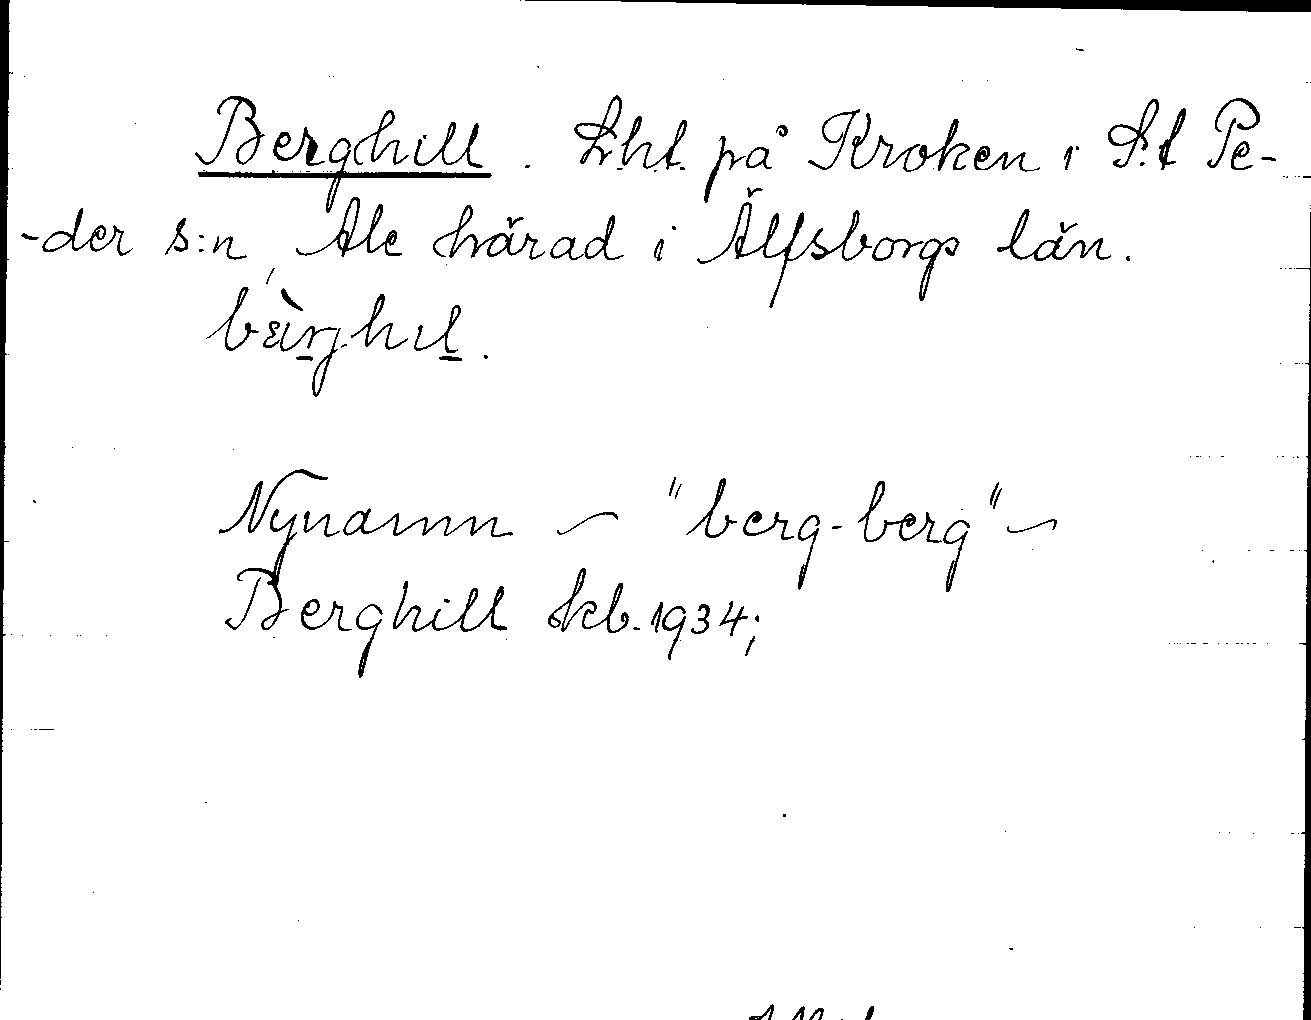 Berghill. Lht. på Kroken i S:t Pe-
-der s:n, Ale härad i Älfsborgs län.
Nynamn – "berg-berg" –
Berghill kb. 1934;